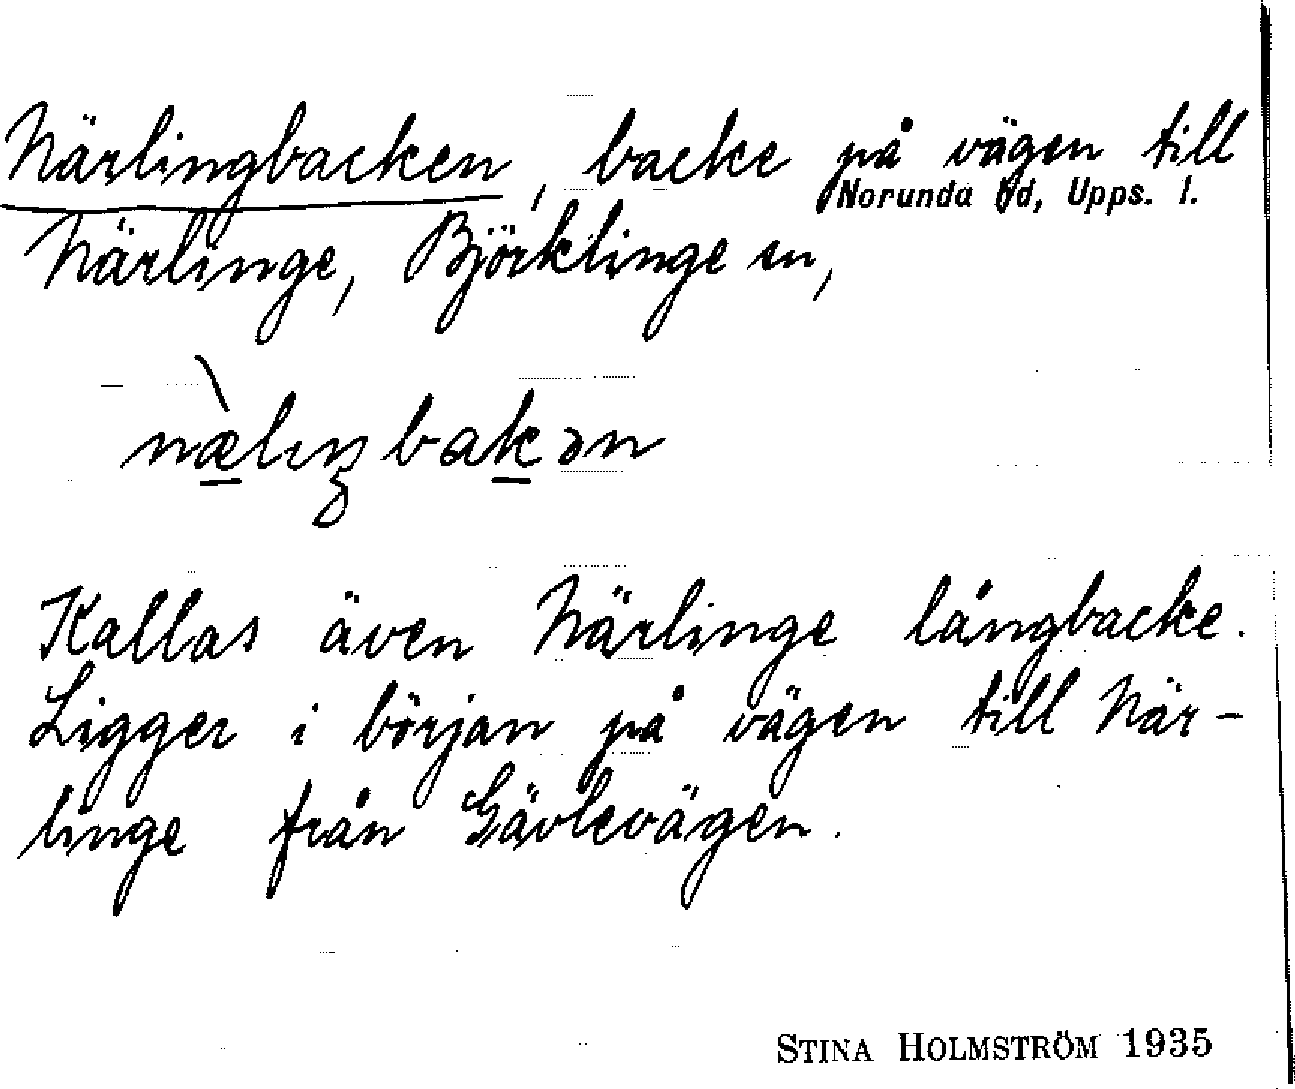 Närlingbacken, backe på vägen till
Norunda hd, Upps. l.
Närlinge, Björklinge sn,
næ̀lıŋbakən
Kallas även Närlinge långbacke.
Ligger i början på vägen till När-
linge från Gävlevägen.
STINA HOLMSTRÖM 1935